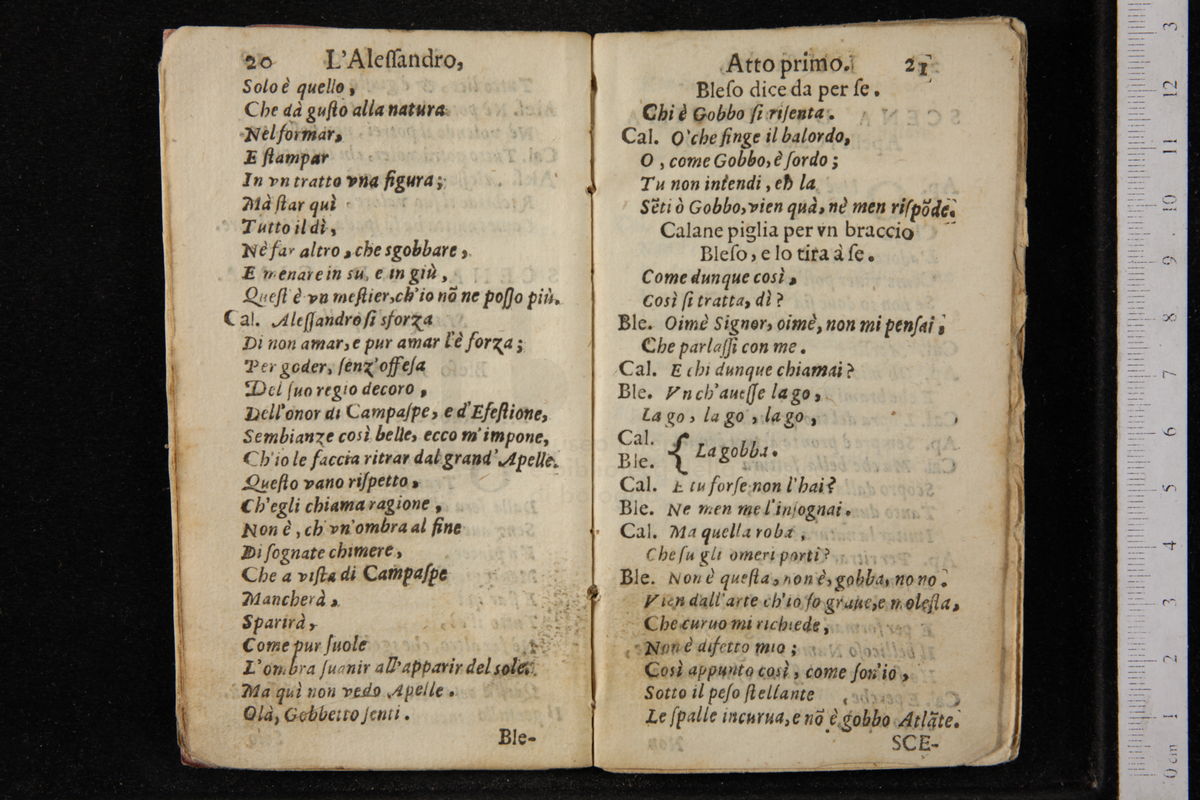 20 L'Aleſſandro,
Solo è quello,
Che dà guſto alla natura
Nèl formar,
E ſtampar
In vn tratto vna figura;
Mà ſtar quì
Tutto il dì,
Nè far altro, che sgobbare,
E menare in su, e in giù,
Queſt'è vn meſtier, ch'io nõ ne poſſo più.
Cal. Aleſſandro ſi sforza
Di non amar, e pur amar l'è forza;
Per goder, ſenz'offeſa
Del ſuo regio decoro,
Dell'onor di Campaſpe, e d'Efeſtione,
Sembianze così belle, ecco m'impone,
Ch'io le faccia ritrar dal grand'Apelle.
Queſto vano riſpetto,
Ch'egli chiama ragione,
Non è, ch'vn'ombra al fine
Di ſognate chimere,
Che a viſta di Campaſpe
Mancherà,
Sparirà,
Come pur ſuole
L'ombra ſuanir all'apparir del sole.
Ma quì non vedo Apelle.
Olà, Gobbetto ſenti.
Ble-
Atto primo. 21
Bleſo dice da per ſe.
Chi è Gobbo ſi riſenta.
Cal. O'che finge il balordo,
O, come Gobbo, è ſordo;
Tu non intendi, eh la
Sẽti ò Gobbo, vien quà, nè men riſpõde.
Calane piglia per vn braccio
Bleſo, e lo tira à ſe.
Come dunque così,
Così ſi tratta, dì?
Ble. Oimè Signor, oimè, non mi penſai,
Che parlaſſi con me.
Cal. E chi dunque chiamai?
Ble. Vn ch'aueſſe la go,
La go, la go, la go,
Cal.
Ble. { La gobba.
Cal. E tu forſe non l'hai?
Ble. Ne men me l'inſognai.
Cal. Ma quella roba,
Che ſu gli omeri porti?
Ble. Non è queſta, non è, gobba, no no.
Vien dall'arte ch'io fo graue, e moleſta,
Che curuo mi richiede,
Non è difetto mio;
Così appunto così, come ſon'io,
Sotto il peſo ſtellante
Le ſpalle incurua, e nõ è gobbo Atlãte.
SCE-
0 cm 1 2 3 4 5 6 7 8 9 10 11 12 3